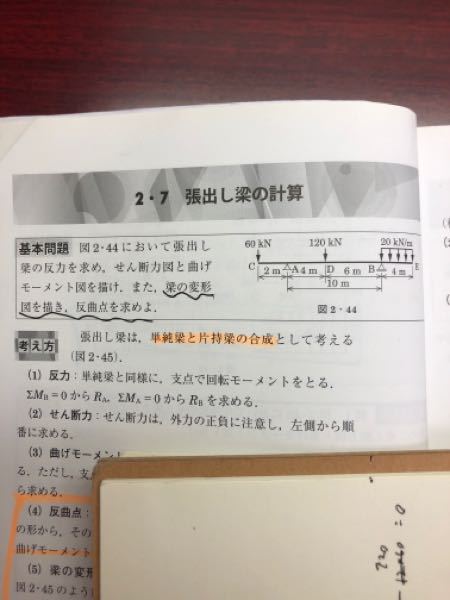 2・7 張出し梁の計算
基本問題 図2・44において張出し
梁の反力を求め，せん断力図と曲げ
モーメント図を描け．また，梁の変形
図を描き，反曲点を求めよ．
60 kN 120 kN 20 kN/m
C A D B E
2 m 4 m 6 m 4 m
10 m
図2・44
考え方 張出し梁は，単純梁と片持梁の合成として考える
(図2・45)．
(1) 反力：単純梁と同様に，支点で回転モーメントをとる．
ΣMB＝0からRA，ΣMA＝0からRBを求める．
(2) せん断力：せん断力は，外力の正負に注意し，左側から順
番に求める．
(3) 曲げモーメント
る．ただし，支
ら求める．
(4) 反曲点：
の形から，その
曲げモーメント
(5) 梁の変形
図2・45のよう
720
= 0